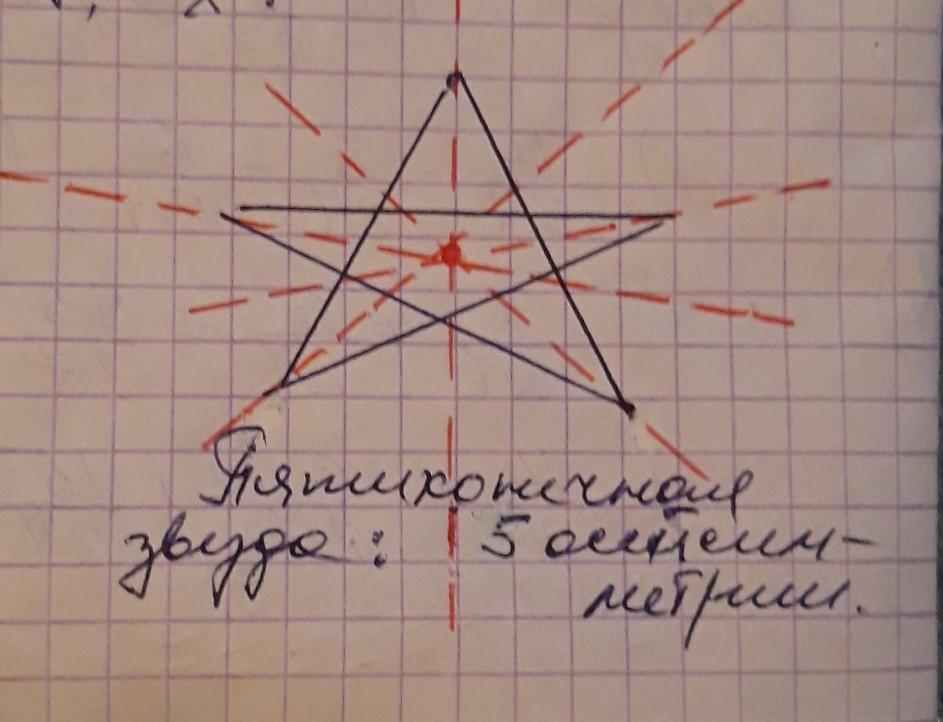 Пятиконечная
звезда: 5 осей сим-
метрии.